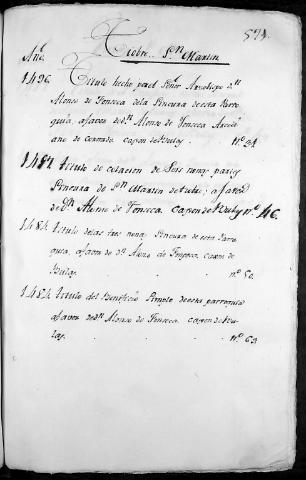 571.
Tiobre. Sn. Martin
Año.
1496. Titulo hecho por el Señor Arzobispo Dn.
Alonso de Fonseca dela Sincura de esta Parro
quia, a favor de Dn. Alonso de Fonseca Arcedi
ano de cajon de Bulas. nº. 31.
1484. titulo de colacion de Seis nonas partes
Sincura de Sn. Martin de tiobre, a favor
de Dn. Alonso de Fonseca. cajon de Bulas nº. 46.
1484. titulo de las tres nonas Sincura de esta Parro
quia, a favor de Dn. Alonso de Fonseca. cajon de
Bulas. nº. 50.
1484. titulo del Beneficio Simple de esta parroquia
a favor de Dn. Alonso de Fonseca. cajon de Bu
las. nº. 63.